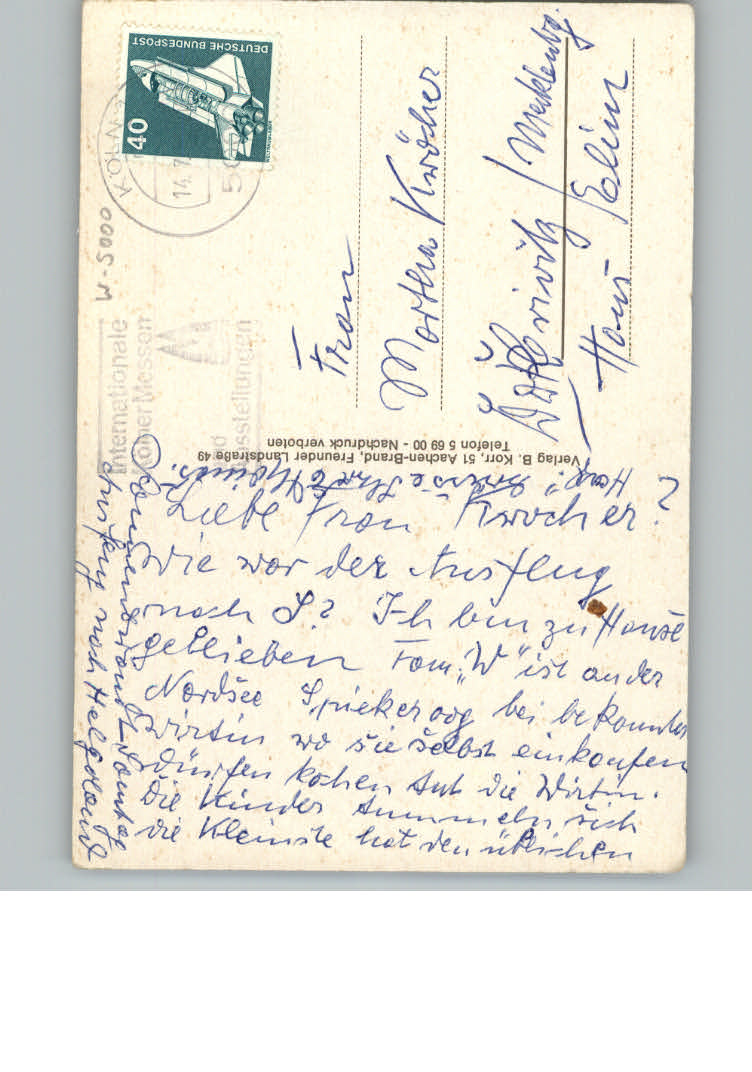 DEUTSCHE BUNDESPOST
40
KÖLN
14.7
50
W-5000
Internationale
Kölner Messen
und
Ausstellungen
Frau
Martha Kröcher
Dörwitz / Mecklenbg.
Haus Elim
Verlag B. Korr, 51 Aachen-Brand, Freunder Landstraße 49
Telefon 5 69 00 - Nachdruck verboten
Liebe Frau Kröcher?
Wie war der Ausflug
nach S.? Ich bin zu Hause
geblieben Fam. „W" ist an der
Nordsee Spiekeroog bei bekannter
Wirtin wo sie selbst einkaufen
dürfen kochen tut die Wirtin.
Die Kinder tummeln sich
die Kleinste hat den üblichen
Sonnenbrand Sonntag
nach Helgoland
Herzl. Grüsse Ihre